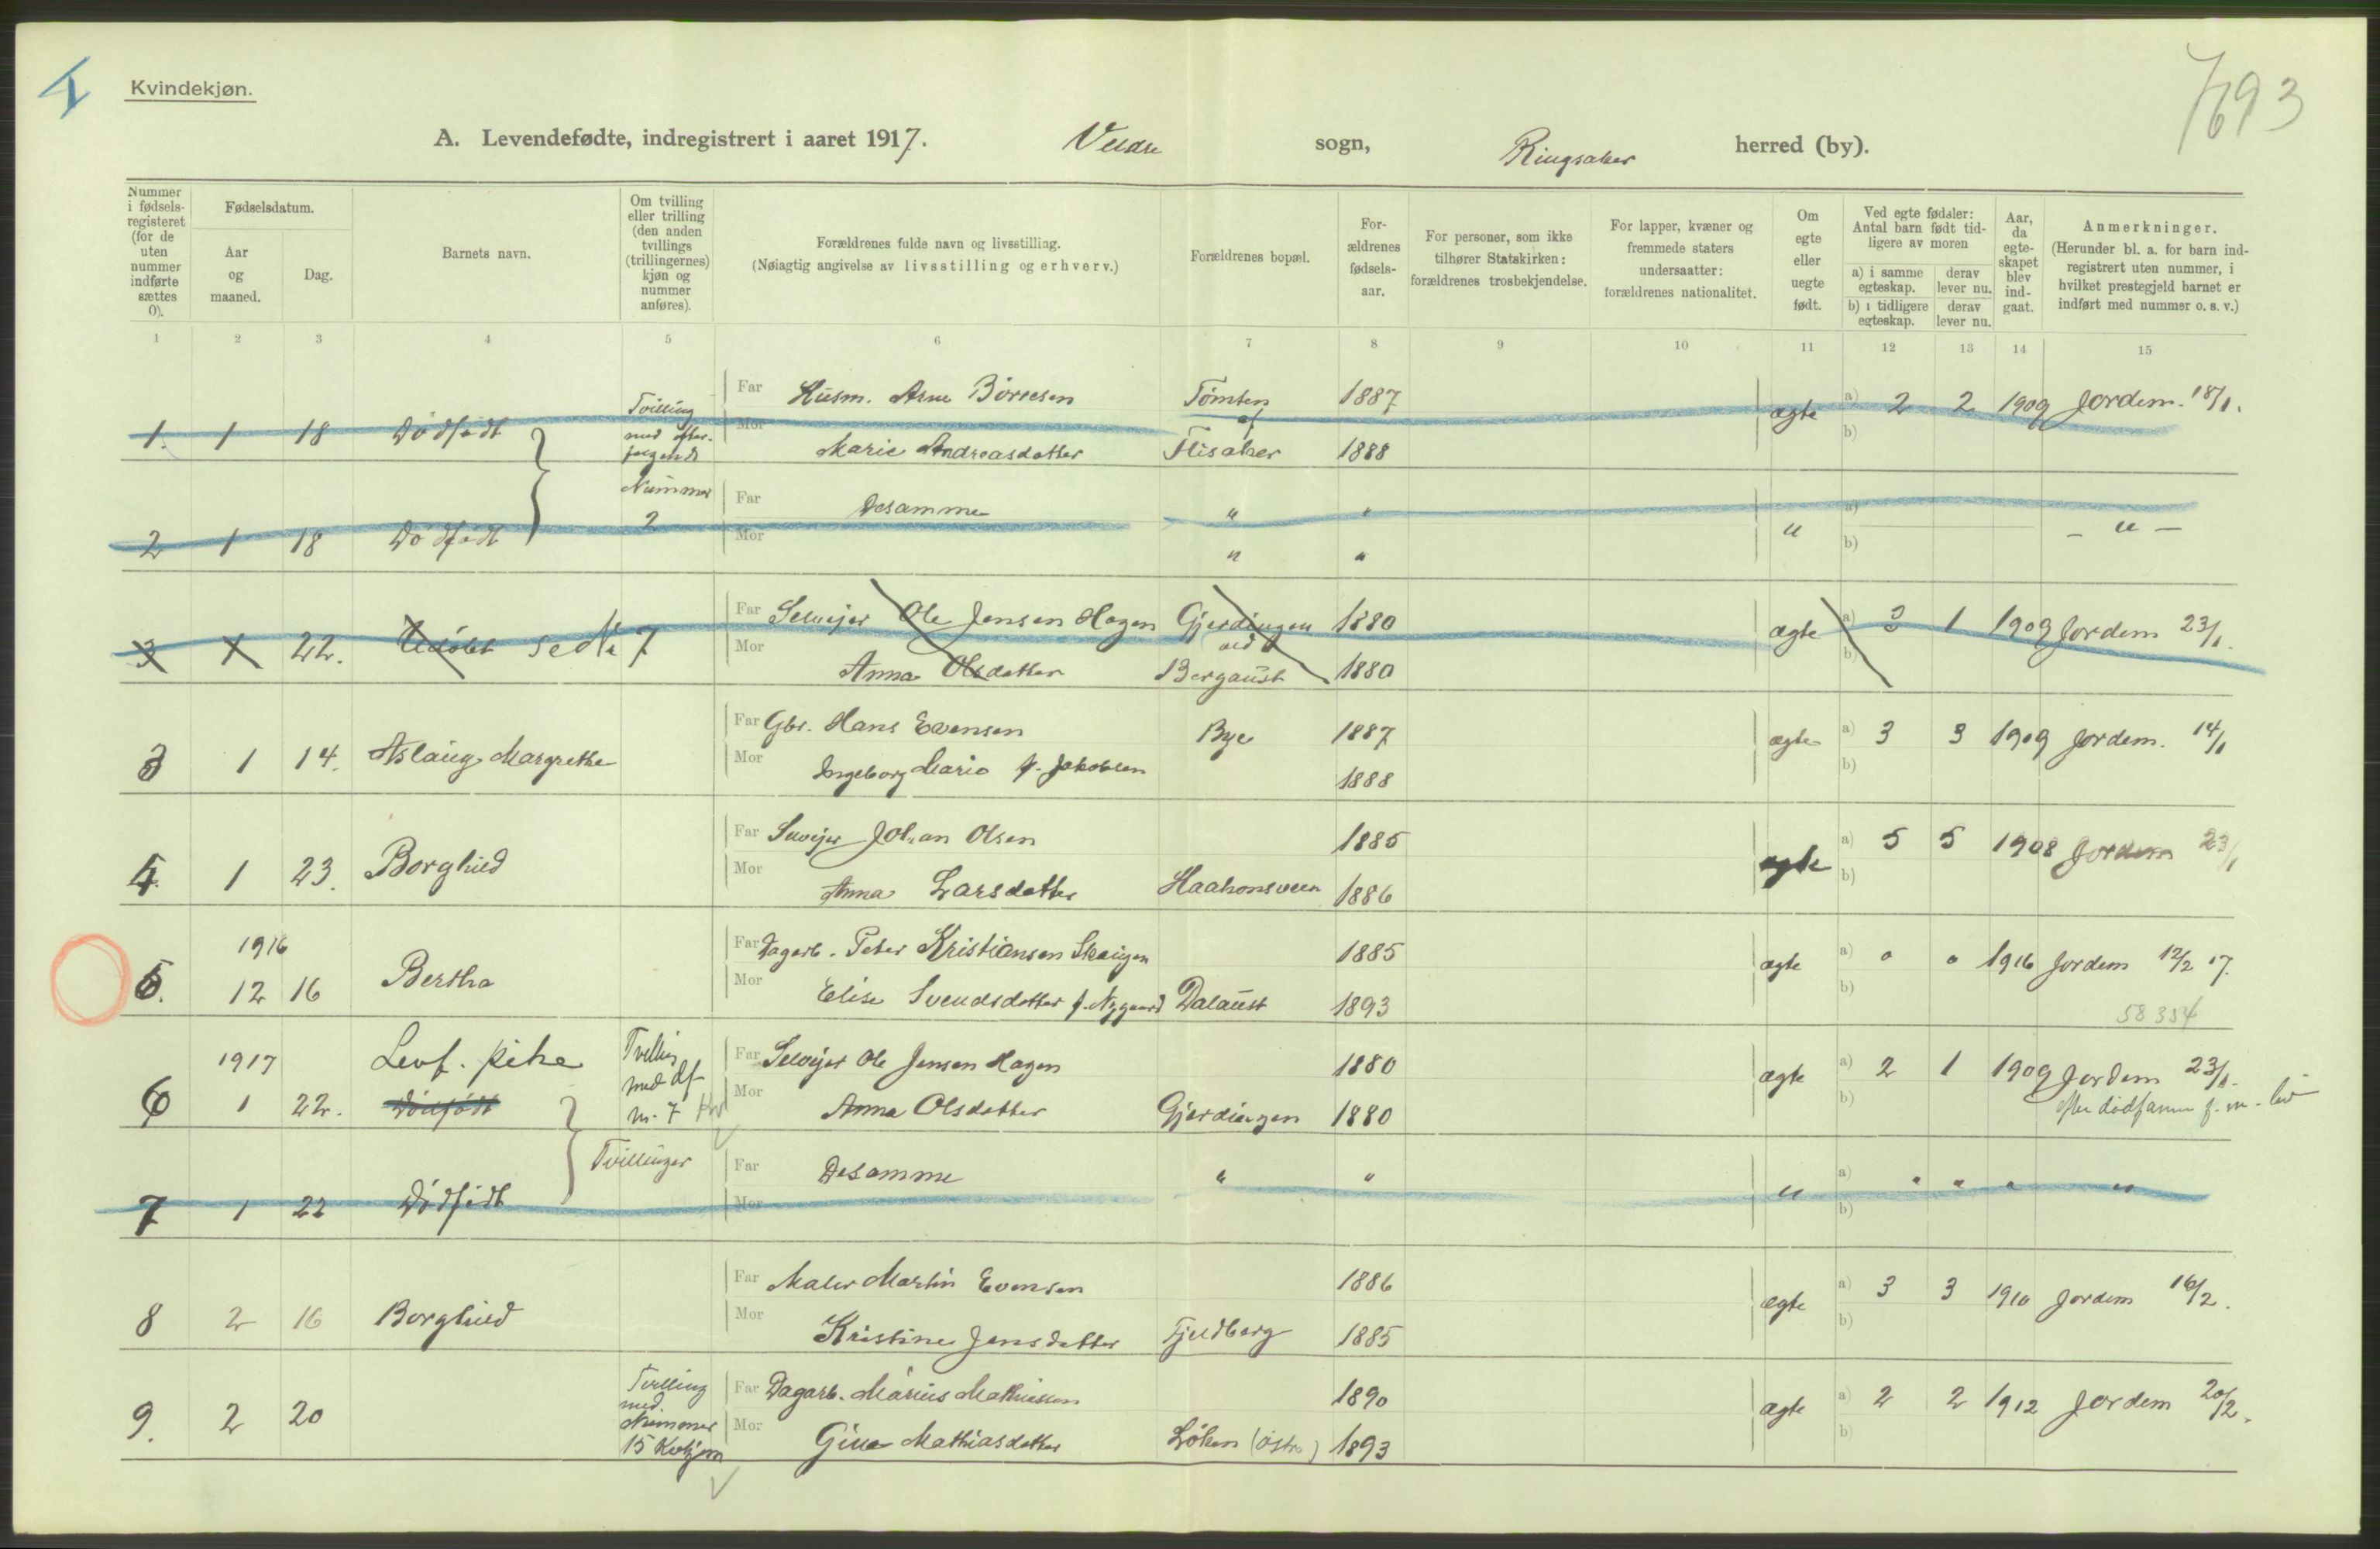 I
Kvindekjøn.
7693
A. Levendefødte, indregistrert i aaret 1917. Veldre sogn, Ringsaker herred (by).
Nummer i fødsels-registeret (for de uten nummer indførte sættes 0).
Fødselsdatum.
Aar og maaned.
Dag.
Barnets navn.
Om tvilling eller trilling (den anden tvillings (trillingernes) kjøn og nummer anføres).
Forældrenes fulde navn og livsstilling.
(Nøiagtig angivelse av livsstilling og erhverv.)
Forældrenes bopæl.
For-ældrenes fødsels-aar.
For personer, som ikke tilhører Statskirken: forældrenes trosbekjendelse.
For lapper, kvæner og fremmede staters undersaatter: forældrenes nationalitet.
Om egte eller uegte født.
Ved egte fødsler: Antal barn født tid-ligere av moren
a) i samme egteskap.
derav lever nu.
b) i tidligere egteskap.
derav lever nu.
Aar, da egte-skapet blev ind-gaat.
Anmerkninger.
(Herunder bl. a. for barn ind-registrert uten nummer, i hvilket prestegjeld barnet er indført med nummer o. s. v.)
1 2 3 4 5 6 7 8 9 10 11 12 13 14 15
1. 1 18 Dødfødt Tvilling med efter-følgende Far Husm. Arne Børresen Tømten af 1887 ægte a) 2 2 1909 Jordem. 18/1.
Mor Marie Andreasdatter Flisaker 1888 b)
2 1 18 Dødfødt Nummer 2 Far Desamme " " " a) — " —
Mor " " b)
3 1 22. Udøbt se № 7 Far Selveier Ole Jensen Hagen Gjerdingen ved 1880 ægte a) 3 1 1909 Jordem 23/1.
Mor Anna Olsdatter Bergaust 1880 b)
3 1 14. Aslaug Margrethe Far Gbr. Hans Evensen Bye 1887 ægte a) 3 3 1909 Jordem. 14/1
Mor Ingeborg Marie f. Jakobsen 1888 b)
4. 1 23. Borghild Far Selveier Johan Olsen 1885 ægte a) 5 5 1908 Jordem 23/1
Mor Anna Larsdatter Haakonsveen 1886 b)
1916
5. 12 16 Bertha Far Dagarb. Peter Kristiansen Skaugen 1885 ægte a) 0 0 1916 Jordem 12/2 17.
Mor Elise Svendsdatter f. Nygaard Dalaust 1893 b)
58354
1917 Levf. pike
6 1 22. Dødfødt Tvilling med df nr. 7 Kv Far Selveier Ole Jensen Hagen 1880 ægte a) 2 1 1909 Jordem 23/1.
Mor Anna Olsdatter Gjerdingen 1880 b)
7 1 22 Dødfødt Tvillinger Far Desamme " " " a) " " " "
Mor b)
8 2 16 Borghild Far Maler Martin Evensen 1886 ægte a) 3 3 1910 Jordem 16/2.
Mor Kristine Jensdatter Fjeldborg 1885 b)
9. 2 20 Tvilling med Nummer 15 Kvkjøn Far Dagarb. Marius Mathiassen 1890 ægte a) 2 2 1912 Jordem 20/2.
Mor Gina Mathiasdatter Løken (østre) 1893 b)